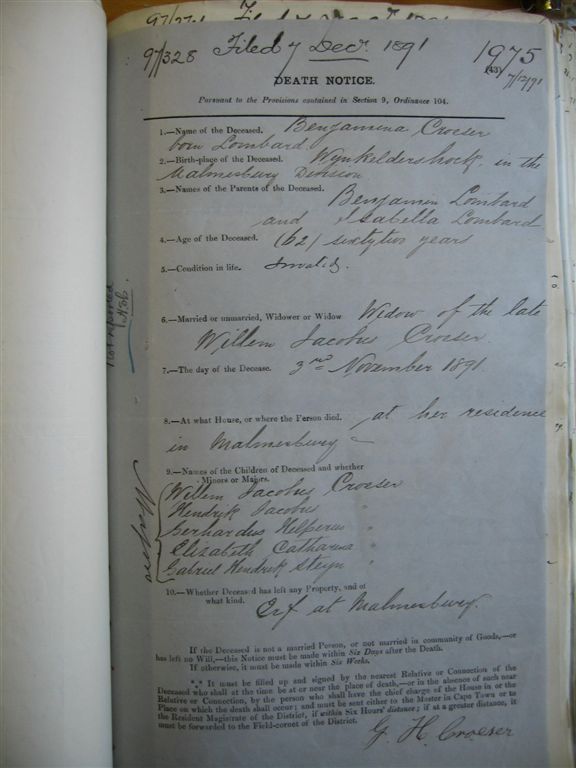 97/328 Filed 7 Decr. 1891 1975
(43) 7/12/91
DEATH NOTICE.
Pursuant to the Provisions contained in Section 9, Ordinance 104.
1.—Name of the Deceased. Benjamina Croeser
born Lombard
2.—Birth-place of the Deceased. Wynkeldershock, in the
Malmesbury Division
3.—Names of the Parents of the Deceased.
Benjamin Lombard
and Isabella Lombard
4.—Age of the Deceased. (62) sixtytwo years
5.—Condition in life. Invalid.
6.—Married or unmarried, Widower or Widow Widow of the late
Willem Jacobus Croeser.
7.—The day of the Decease. 3rd November 1891.
8.—At what House, or where the Person died. at her residence
in Malmesbury
9.—Names of the Children of Deceased and whether
Minors or Majors.
Majors
Willem Jacobus Croeser
Hendrik Jacobus "
Gerhardus "
Elizabeth Catharina "
Gabriel Hendrik Steyn "
10.—Whether Deceased has left any Property, and of
what kind.
Erf at Malmesbury.
If the Deceased is not a married Person, or not married in community of Goods,—or
has left no Will,—this Notice must be made within Six Days after the Death.
If otherwise, it must be made within Six Weeks.
*** It must be filled up and signed by the nearest Relative or Connection of the
Deceased who shall at the time be at or near the place of death,—or in the absence of such near
Relative or Connection, by the person who shall have the chief charge of the House in or the
Place on which the death shall occur; and must be sent either to the Master in Cape Town or to
the Resident Magistrate of the District, if within Six Hours' distance; if at a greater distance, it
must be forwarded to the Field-cornet of the District.
G. H. Croeser